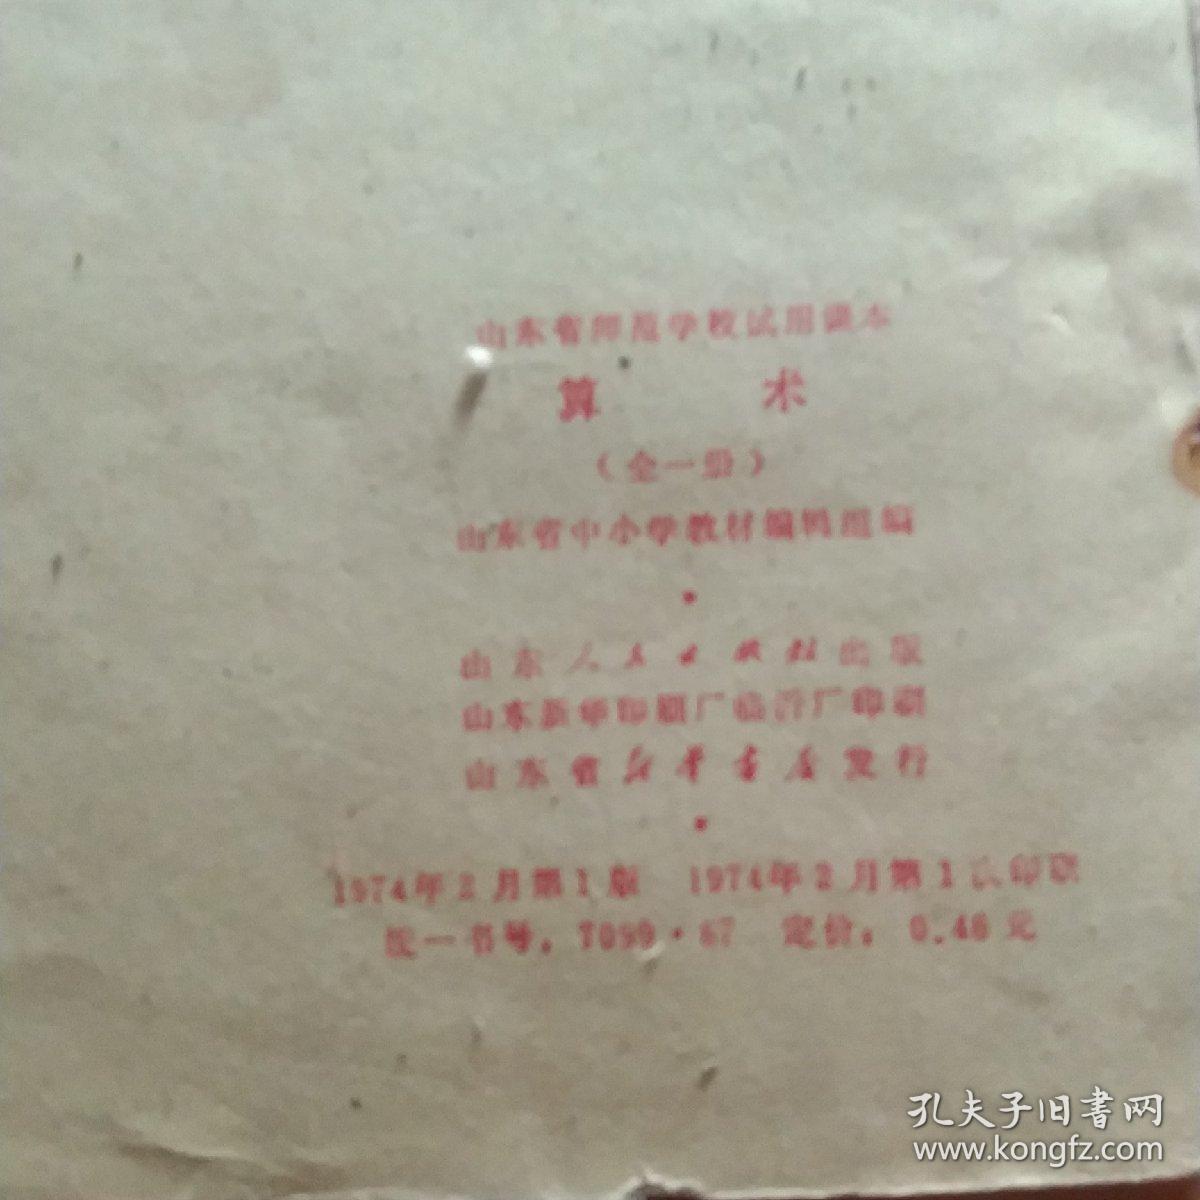 山东省师范学校试用课本
算 术
（全一册）
山东省中小学教材编辑组编
山东人民出版社出版
山东新华印刷厂临沂厂印刷
山东省新华书店发行
1974年2月第1版 1974年2月第1次印刷
统一书号：7099·67 定价：0.46元
孔夫子旧書网
www.kongfz.com